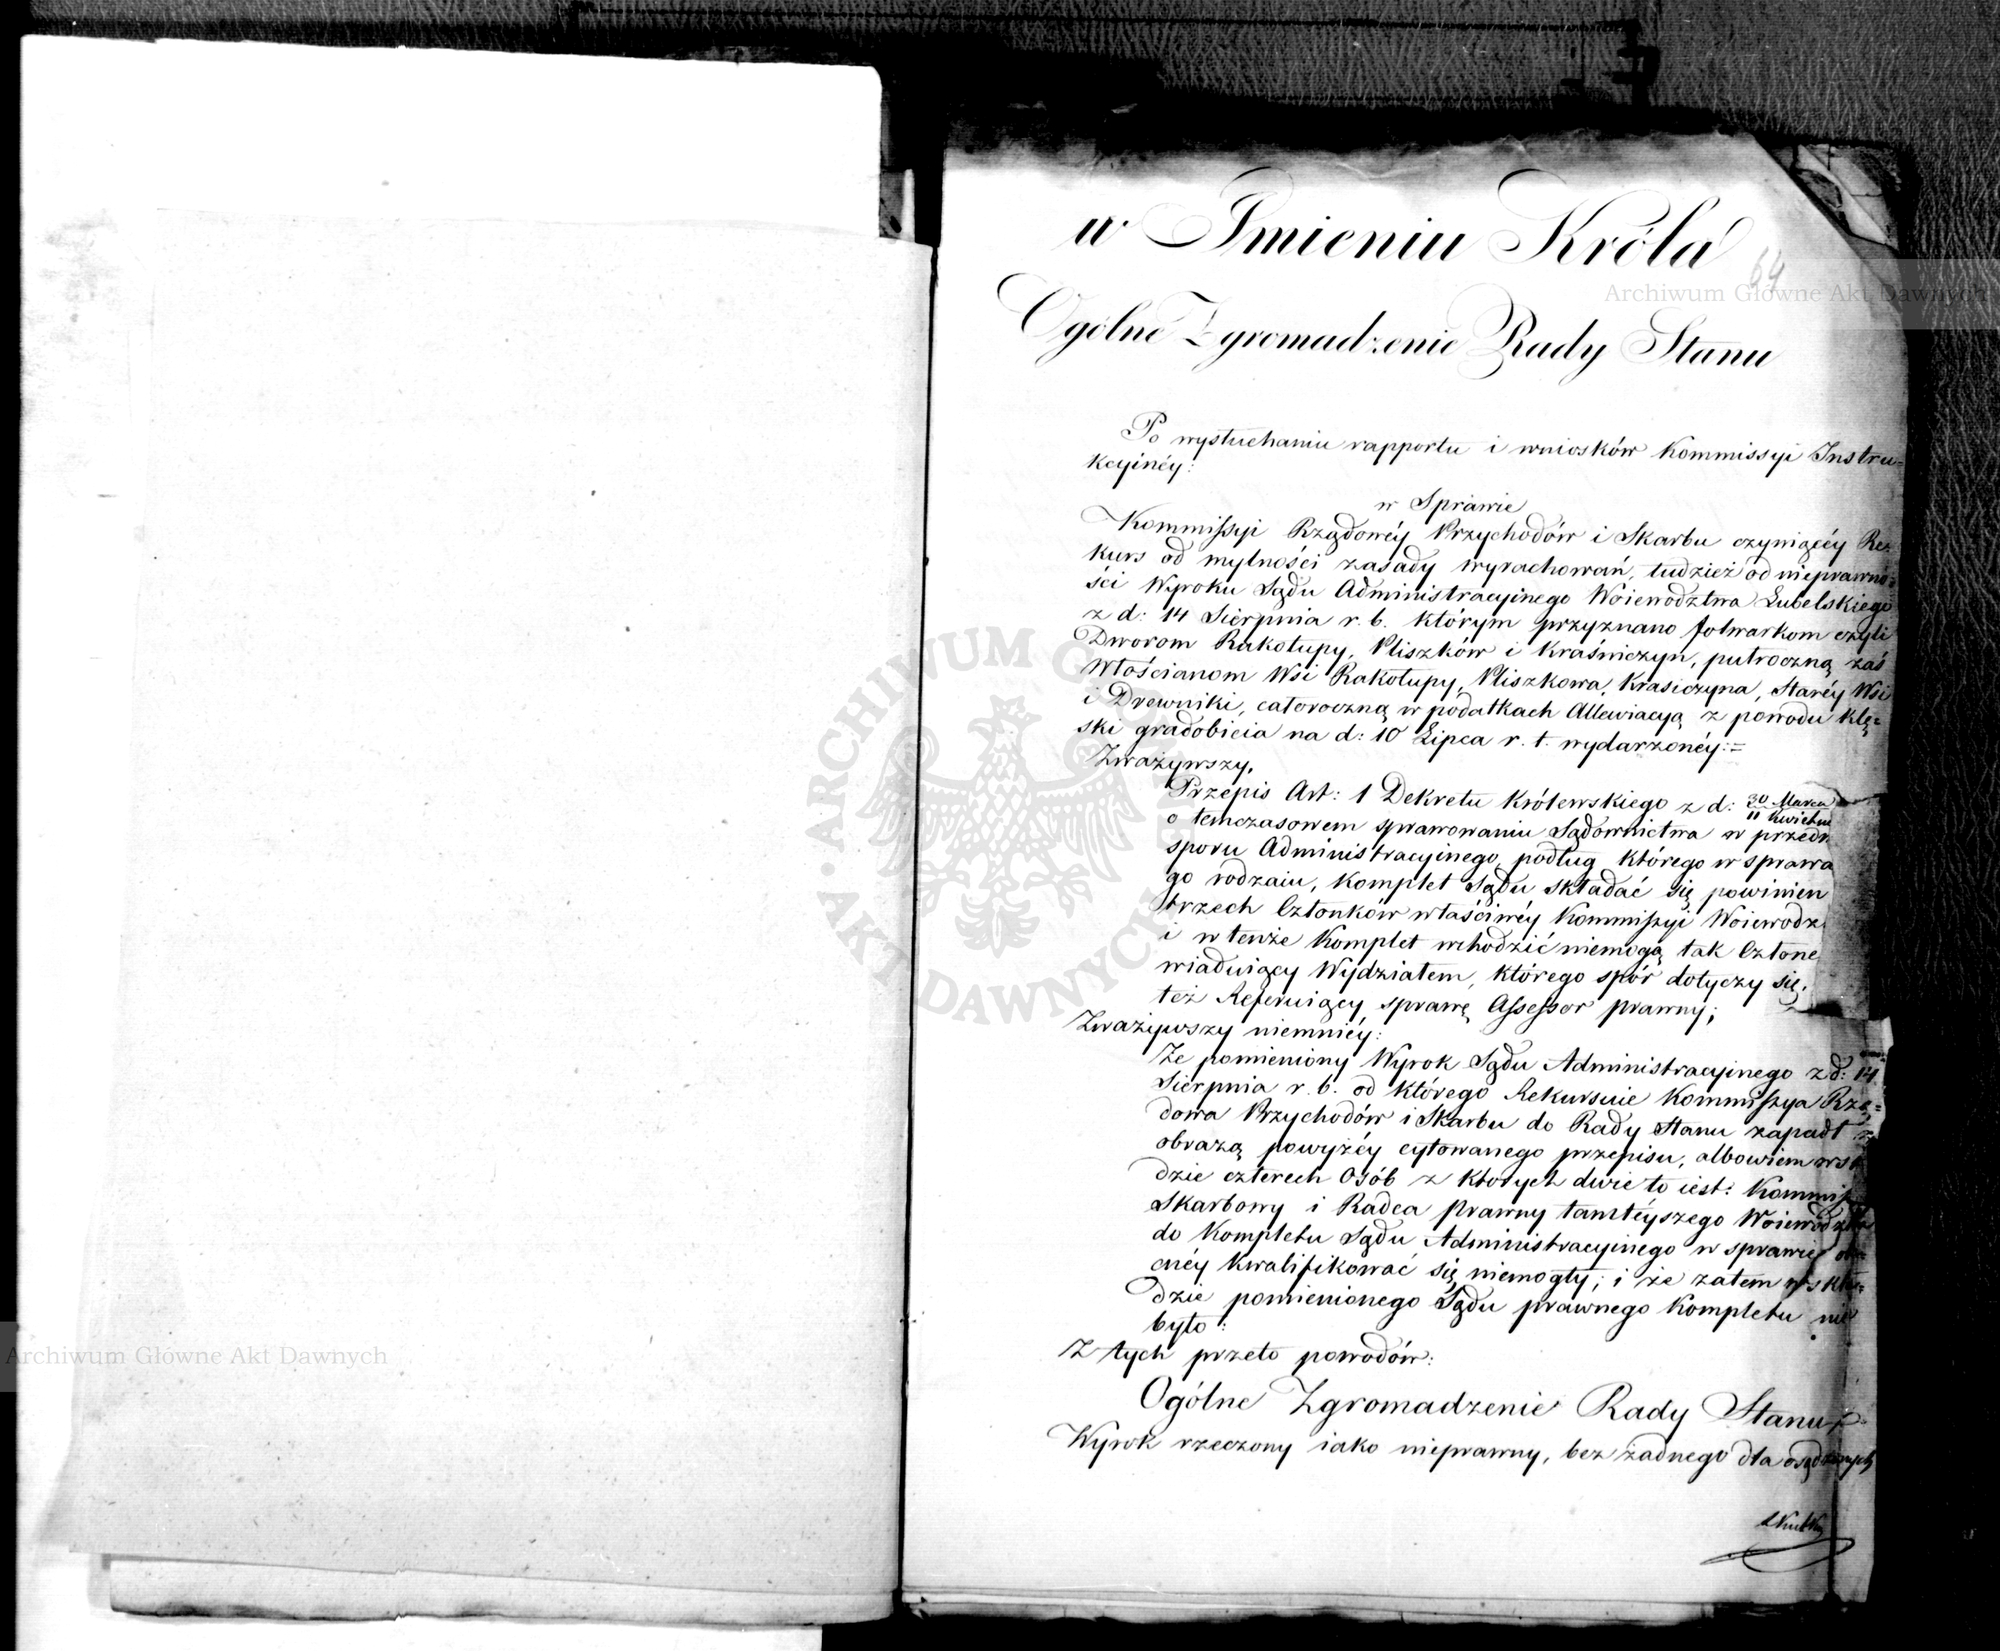 w Jmieniu Króla
64
Ogólne Zgromadzenie Rady Stanu
Po wysłuchaniu rapportu i wniosków Kommissyi Instru=
kcyinéy:
w Sprawie
Kommissyi Rządowéy Przychodów i Skarbu czyniącéy Re=
kurs od mylności zasady wyrachowań, tudzież od nieprawno=
ści Wyroku Sądu Administracyinego Woiewodztwa Lubelskiego
z d: 14 Sierpnia r. b. którym przyznano folwarkom czyli
Dworom Rakołupy, Pliszków i Kraśniczyn, putroczną zaś
Włościanom Wsi Rakołupy, Pliszkowa, Krasiczyna, Staréy Wsi
i Drewniki, całoroczną w podatkach Allewiacyą z powodu klę=
ski gradobicia na d: 10 Lipca r. t. wydarzonéy:=
Zważywszy,
Przepis Art: 1 Dekretu Królewskiego z d: 30 Marca
11 Kwietn
o tèmczasowem sprawowaniu Sądownictwa w przedm
sporu Administracyinego, podług którego w sprawa
go rodzaiu, Komplet Sądu składać się powinien
trzech Członków właściwéy Kommissyi Woiewodz
i w tenże Komplet wchodzić niemogą tak Człone
wiaduiący Wydziałem, którego spór dotyczy się,
też Referuiący sprawę Assessor prawny;
Zważywszy niemniéy:
Że pomieniony Wyrok Sądu Administracyinego z d: 14
Sierpnia r. b. od którego Rekursuie Kommissya Rzą=
dowa Przychodów i Skarbu do Rady Stanu zapadł z
obrazą powyżéy cytowanego przepisu, albowiem w skł
dzie czterech Osób z których dwie to iest: Kommiss
Skarbowy i Radca Prawny tamtéyszego Woiewodztwa
do Kompletu Sądu Administracyinego w sprawie ob=
cnéy kwalifikować się niemogły; i że zatem w skła=
dzie pomienionego Sądu prawnego Kompletu nie
było:
Z tych przeto powodów:
Ogólne Zgromadzenie Rady Stanu
Wyrok rzeczony iako nieprawny, bez żadnego dla osądzonych
Archiwum Główne Akt Dawnych
Archiwum Główne Akt Dawnych
ARCHIWUM GŁÓWNE AKT DAWNYCH